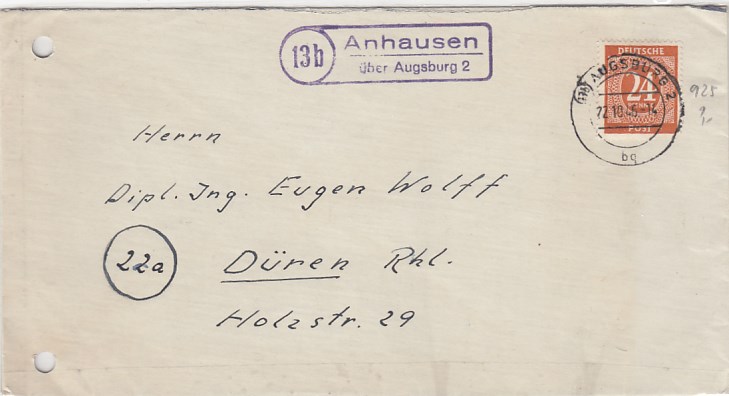 13b Anhausen
über Augsburg 2
DEUTSCHE
24
POST
AUGSBURG 2
bq
925
Herrn
Dipl. Ing. Eugen Wolff
22a Düren Rhl.
Holzstr. 29